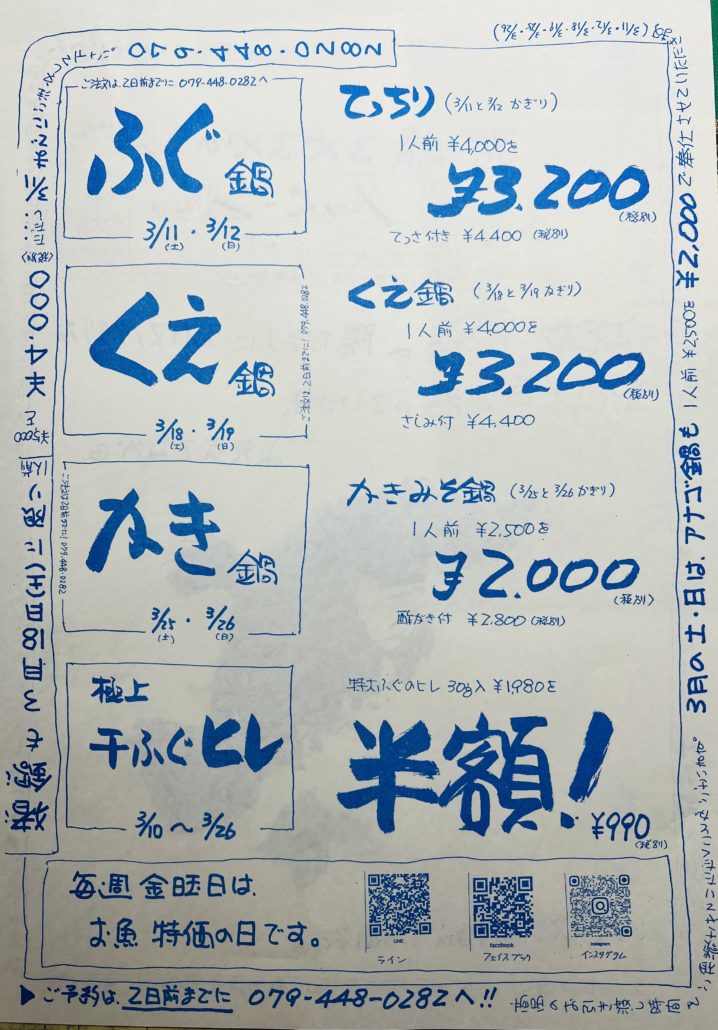 ご注文は、2日前までに 079-448-0282へ
ふぐ鍋
3/11(土)・3/12(日)
てっちり (3/11と3/12 かぎり)
1人前 ¥4,000を
¥3.200
(税別)
てっさ付き ¥4.400 (税別)
くえ鍋
3/18(土)・3/19(日)
ご注文は、2日前までに! 079.448.0282
くえ鍋 (3/18と3/19 かぎり)
1人前 ¥4,000を
¥3.200
(税別)
さしみ付 ¥4,400
かき鍋
3/25(土)・3/26(日)
ご注文は2日前までに! 079.448.0282
かきみそ鍋 (3/25と3/26 かぎり)
1人前 ¥2,500を
¥2.000
(税別)
酢がき付 ¥2,800 (税別)
極上
干ふぐヒレ
3/10〜3/26
特大ふぐのヒレ 30g入 ¥1980を
半額!
¥990
(税別)
毎週 金曜日は、
お魚 特価の日です。
LINE
ライン
facebook
フェイスブック
Instagram
インスタグラム
▶ご予約は、2日前までに 079-448-0282へ!!
3月の土・日は、アナゴ鍋も 1人前 ¥2500を ¥2,000で奉仕させていただき
(3/11・3/12・3/18・3/19・3/25・3/26)
猪鍋も3月18日(土)に限り
1人前
¥5000を
¥4.000
(税別)
079.448.0282